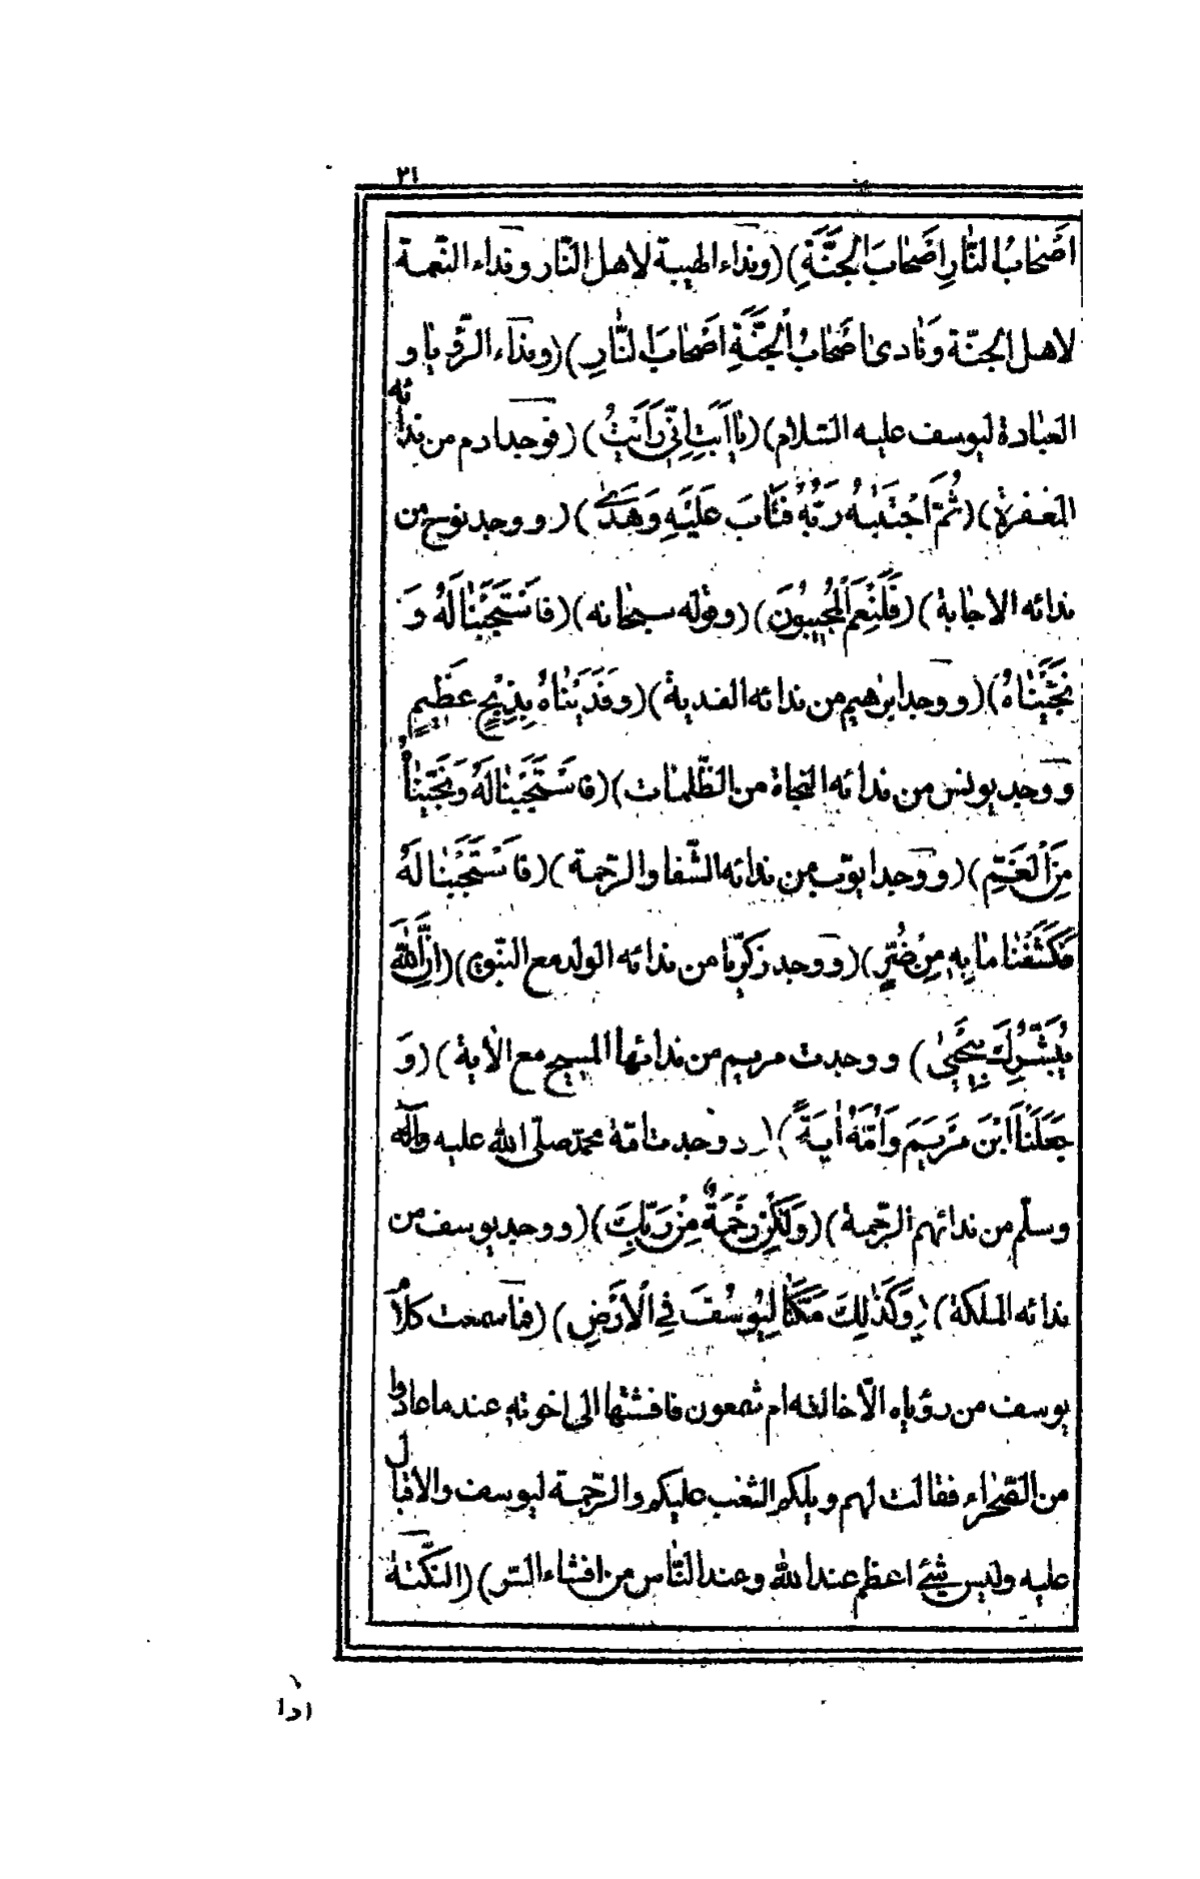 ٣١
اَصْحَابُ النَّارِ اَصْحَابَ الْجَنَّةِ) (ونداء الهيبة لاهل النّار ونداء النّعمة
لاهل الجنّة وَنَادىٰ اَصْحَابُ الْجَنَّةِ اَصْحَابَ النَّارِ) (ونداء الرّؤيا و
العبادة ليوسف عليه السّلام) (يَا اَبَتِ اِنّي رَاَيْتُ) (فوجد ادم من ندائه
المغفرة) (ثُمَّ اجْتَبٰيهُ رَبُّهُ فَتَابَ عَلَيْهِ وَهَدىٰ) (ووجد نوح من
ندائه الاجابة) (فَلَنِعْمَ الْمُجِيبُونَ) (وقوله سبحانه) (فَاسْتَجَبْنَا لَهُ وَ
نَجَّيْنَاهُ) (ووجد ابرٰهيم من ندائه الفدية) (وَفَدَيْنَاهُ بِذِبْحٍ عَظِيمٍ
ووجد يونس من ندائه النجاة من الظّلمات) (فَاسْتَجَبْنَا لَهُ وَنَجَّيْنَاهُ
مِنَ الْغَمِّ) (ووجد ايّوب من ندائه الشّفا والرّحمة) (فَاسْتَجَبْنَا لَهُ
فَكَشَفْنَا مَا بِهِ مِنْ ضُرٍّ) (ووجد زكريّا من ندائه الولد مع النبّوة) (اِنَّ اللّٰهَ
يُبَشِّرُكَ بِيَحْيىٰ) ووجدت مريم من ندائها المسيح مع الاٰية) (وَ
جَعَلْنَا ابْنَ مَرْيَمَ وَاُمَّهُ اٰيَةً) (ووجد امّة محمّد صلّى الله عليه واٰله
وسلّم من ندائهم الرّحمة) (وَلٰكِنْ رَحْمَةً مِنْ رَبِّكَ) (ووجد يوسف من
ندائه المملكة) (وَكَذٰلِكَ مَكَّنَّا لِيُوسُفَ فِي الْاَرْضِ) (فما سمعت كلام
يوسف من رؤياه الاّ خالته ام شمعون فافشتها الى اخوته عندما عادوا
من الصّحراء فقالت لهم ويلكم التعب عليكم والرّحمة ليوسف والاقبال
عليه وليس شئ اعظم عند الله وعند النّاس من افشاء السّر) (النكتة